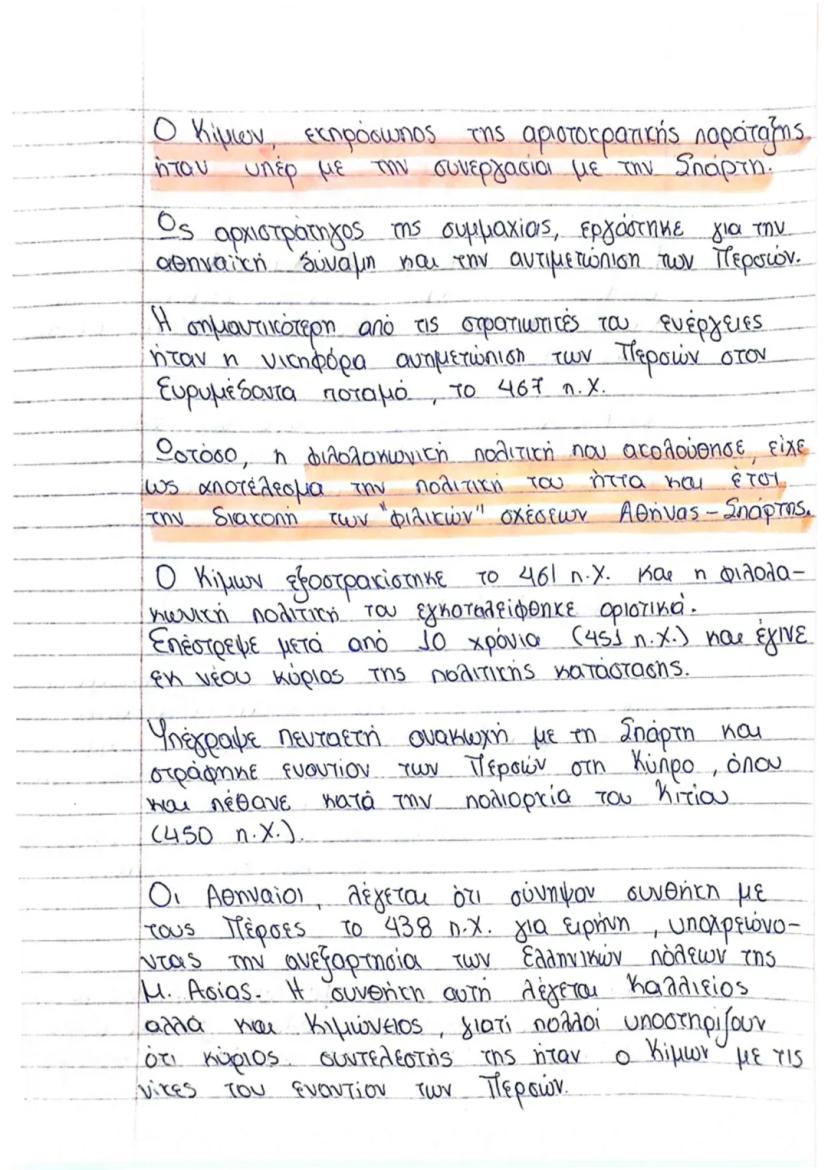 Ο Κίμων, εκπρόσωπος της αριστοκρατικής παράταξης
ήταν υπέρ με την συνεργασία με την Σπάρτη.
Ως αρχιστράτηγος της συμμαχίας, εργάστηκε για την
αθηναϊκή δύναμη και την αντιμετώπιση των Περσών.
Η σημαντικότερη από τις στρατιωτικές του ενέργειες
ήταν η νικηφόρα αντιμετώπιση των Περσών στον
Ευρυμέδοντα ποταμό, το 467 π.Χ.
Ωστόσο, η φιλολακωνική πολιτική που ακολούθησε, είχε
ως αποτέλεσμα την πολιτική του ήττα και έτσι
την διακοπή των "φιλικών" σχέσεων Αθήνας-Σπάρτης.
Ο Κίμων εξοστρακίστηκε το 461 π.Χ. και η φιλολα-
κωνική πολιτική του εγκαταλείφθηκε οριστικά.
Επέστρεψε μετά από 10 χρόνια (451 π.Χ.) και έγινε
εκ νέου κύριος της πολιτικής κατάστασης.
Υπέγραψε πενταετή ανακωχή με τη Σπάρτη και
στράφηκε εναντίον των Περσών στη Κύπρο, όπου
και πέθανε κατά την πολιορκία του Κιτίου
(450 π.Χ.).
Οι Αθηναίοι, λέγεται ότι σύνηψαν συνθήκη με
τους Πέρσες το 438 π.Χ. για ειρήνη, υποχρεώνο-
ντας την ανεξαρτησία των Ελληνικών πόλεων της
Μ. Ασίας. Η συνθήκη αυτή λέγεται Καλλιείος
αλλά και Κιμώνειος, γιατί πολλοί υποστηρίζουν
ότι κύριος συντελεστής της ήταν ο Κίμων με τις
νίκες του εναντίον των Περσών.